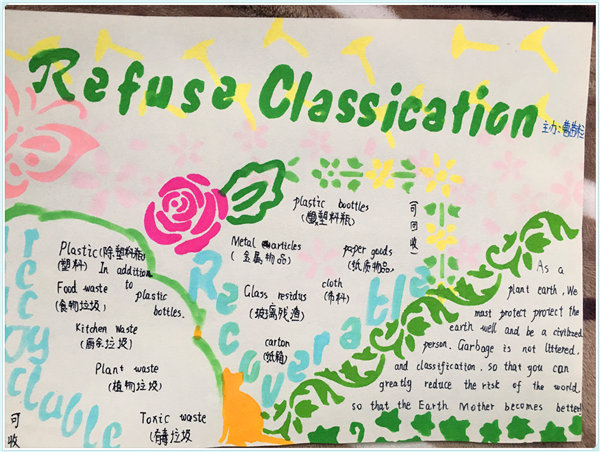 Refuse Classication
主力:
plastic boottles
(塑塑料瓶)
(可回收)
Metal articles
(金属物品)
paper goods
(纸质物品)
Glass residus
(玻璃残渣)
cloth
(布料)
carton
(纸箱)
Recoverable
Plastic(除塑料瓶)
(塑料) In addition
to
plastic
bottles.
Food waste
(食物垃圾)
Kitchen Waste
(厨余垃圾)
Plant waste
(植物垃圾)
Toxic waste
(有毒垃圾
可
收
As a
plant earth, We
must protect protect the
earth well and be a civilized
person. Garbage is not littered,
and classification, so that you can
greatly reduce the risk of the world
so that the Earth Mother becomes better